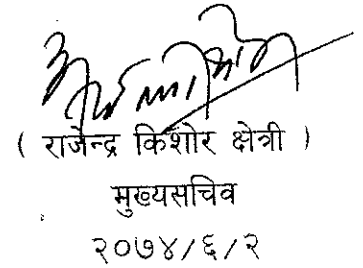 ( राजेन्द्र किशोर क्षेत्री )
मुख्यसचिव
२०७४/६/२